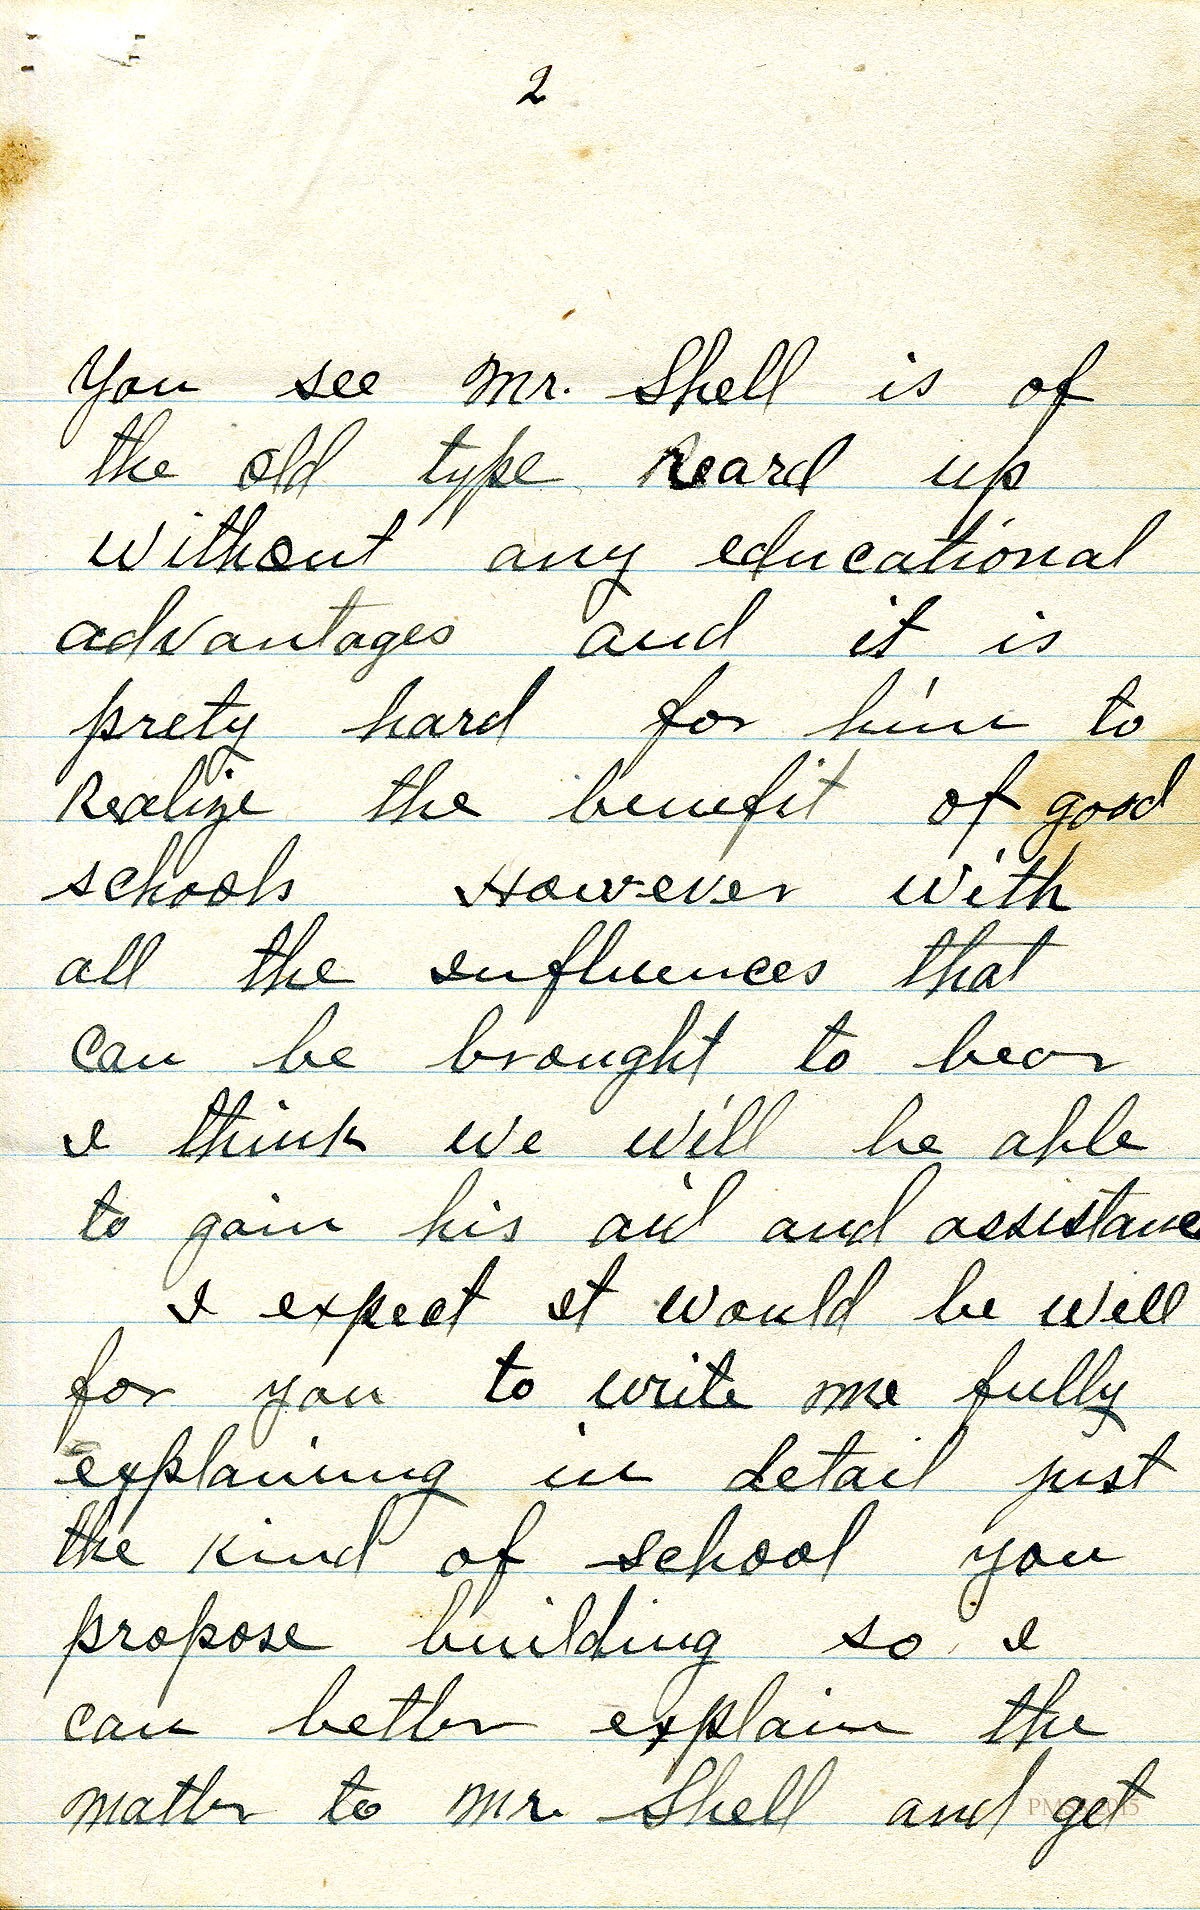 2
You see Mr. Shell is of
the old type Reard up
without any educational
advantages and it is
prety hard for him to
Realize the benefit of good
schools However with
all the influences that
can be brought to bear
I think we will be able
to gain his aid and assistance
I expect it would be well
for you to write me fully
explaining in detail just
the kind of school you
propose building so I
can better explain the
matter to Mr. Shell and get